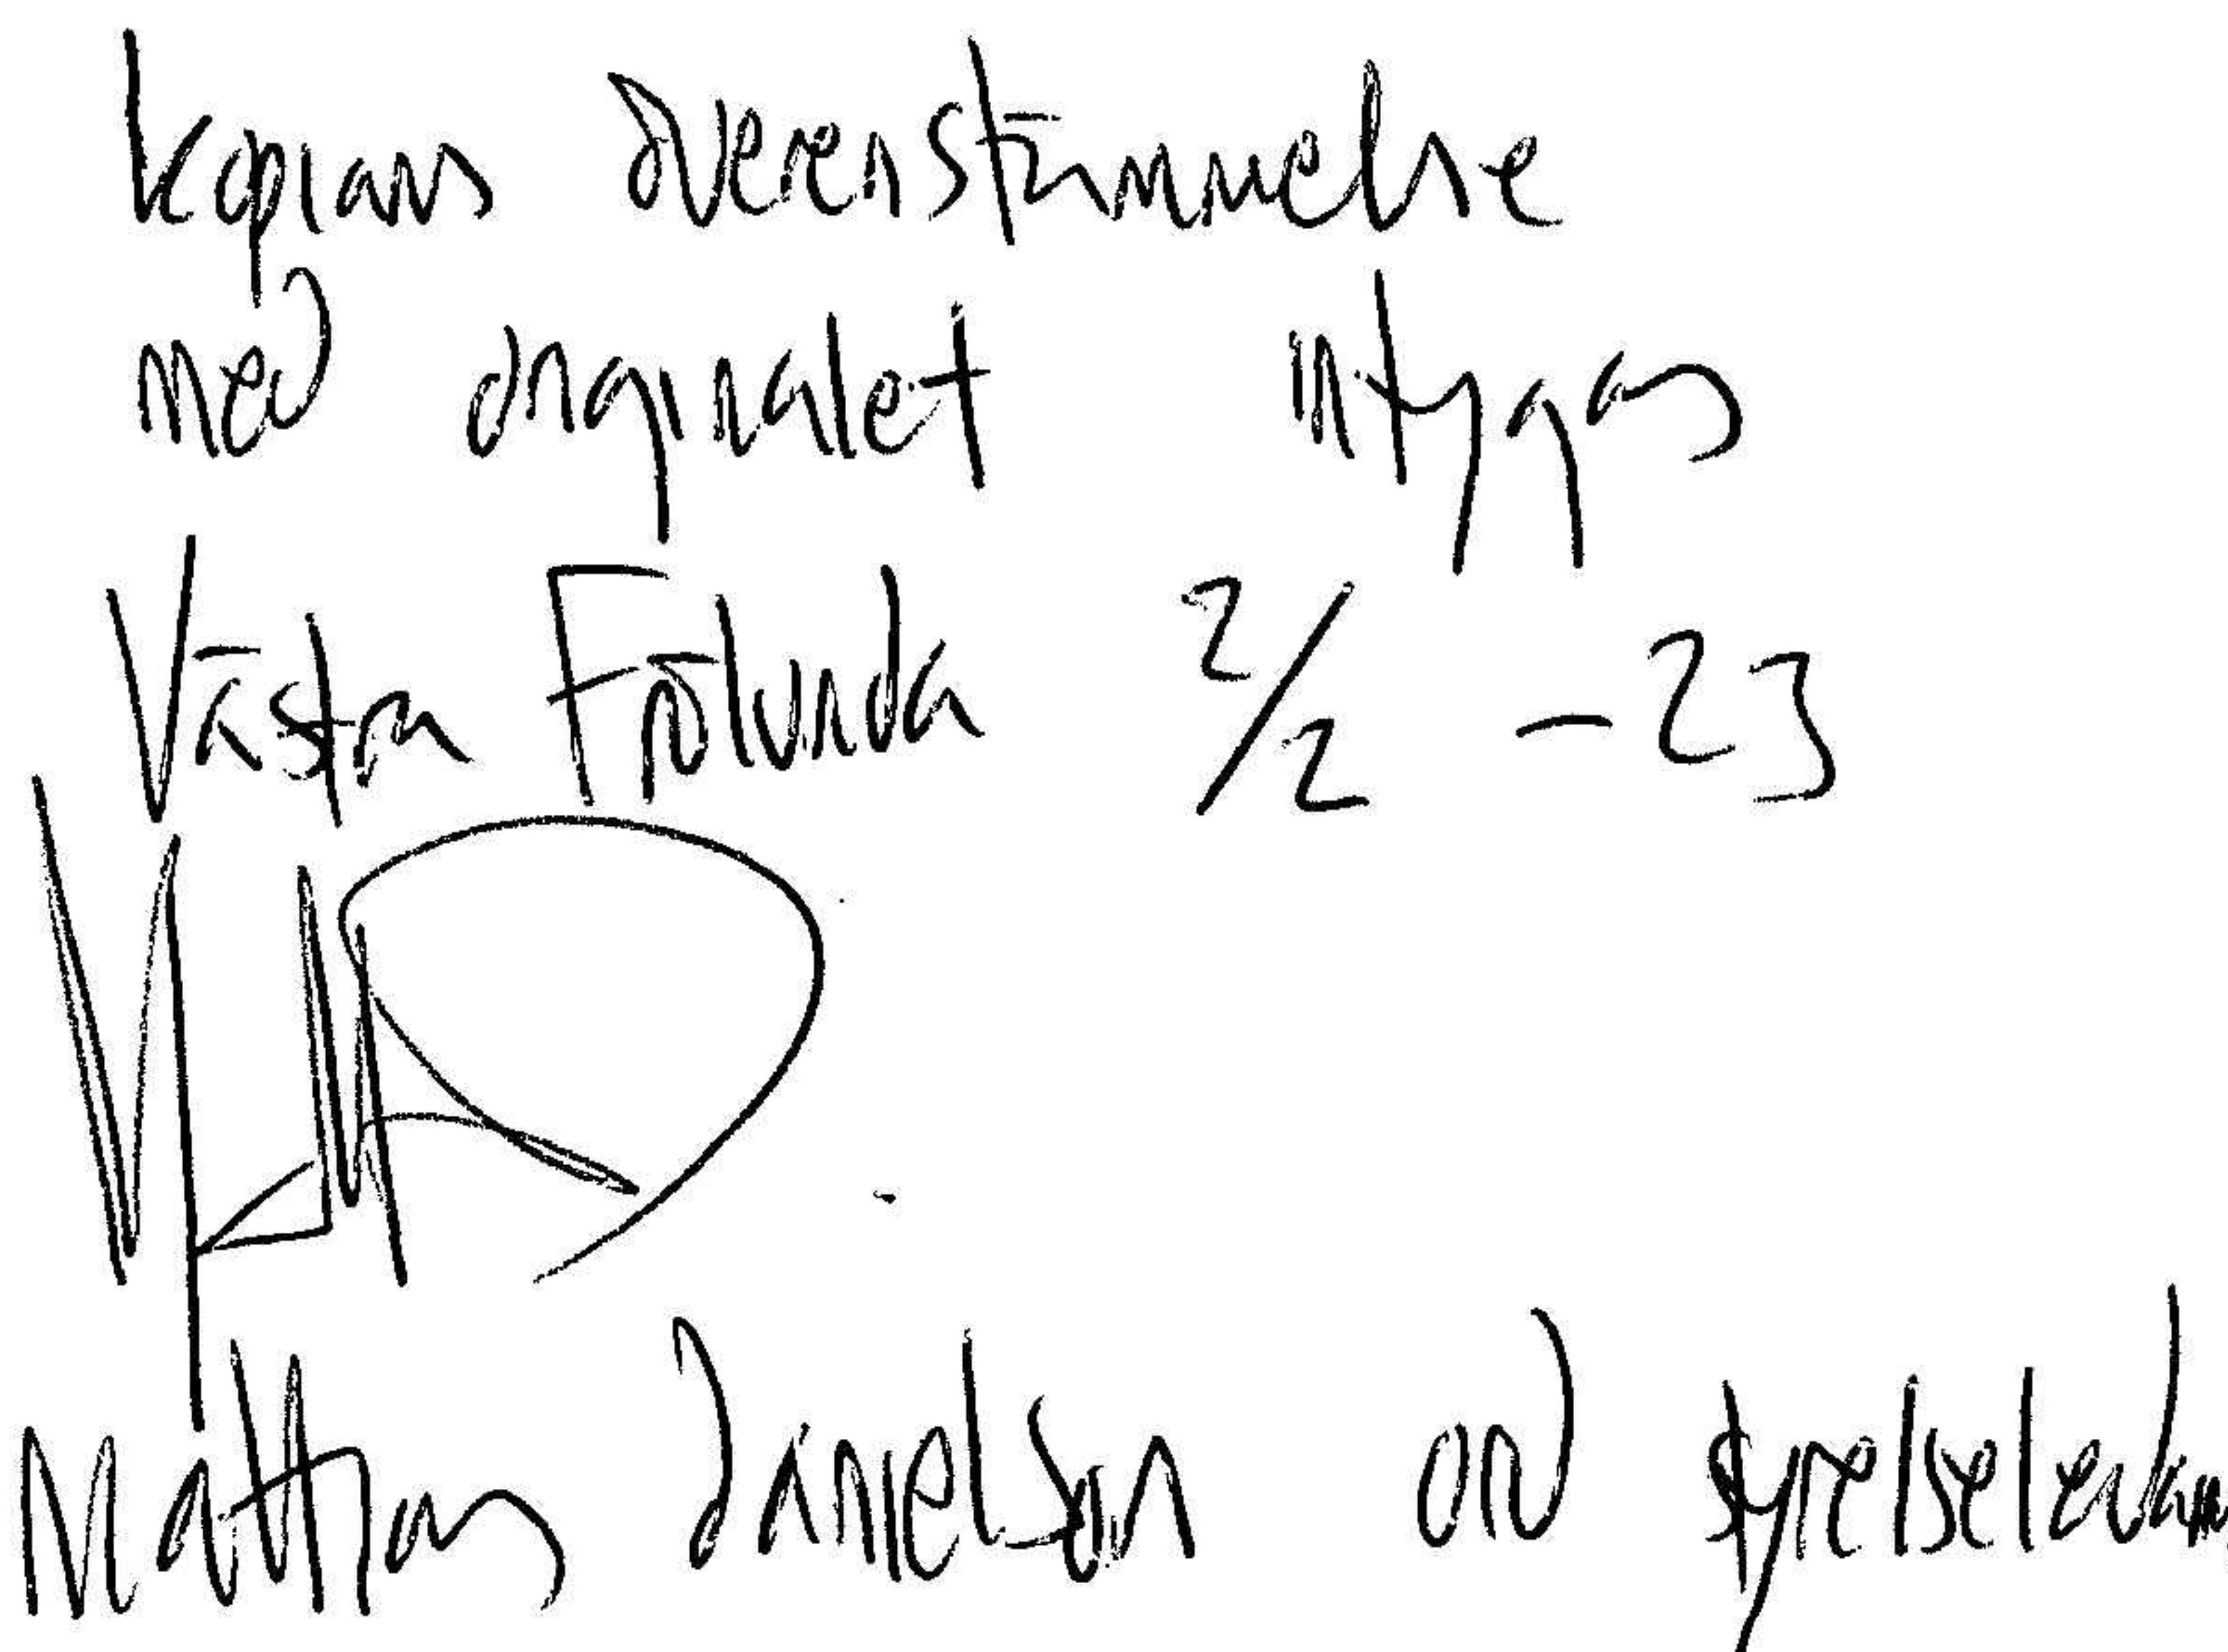 Kopians överenstämmelse
med orginalet intygas
Västra Frölunda 2/2 -23
Mattias Danielson ord styrelseledam